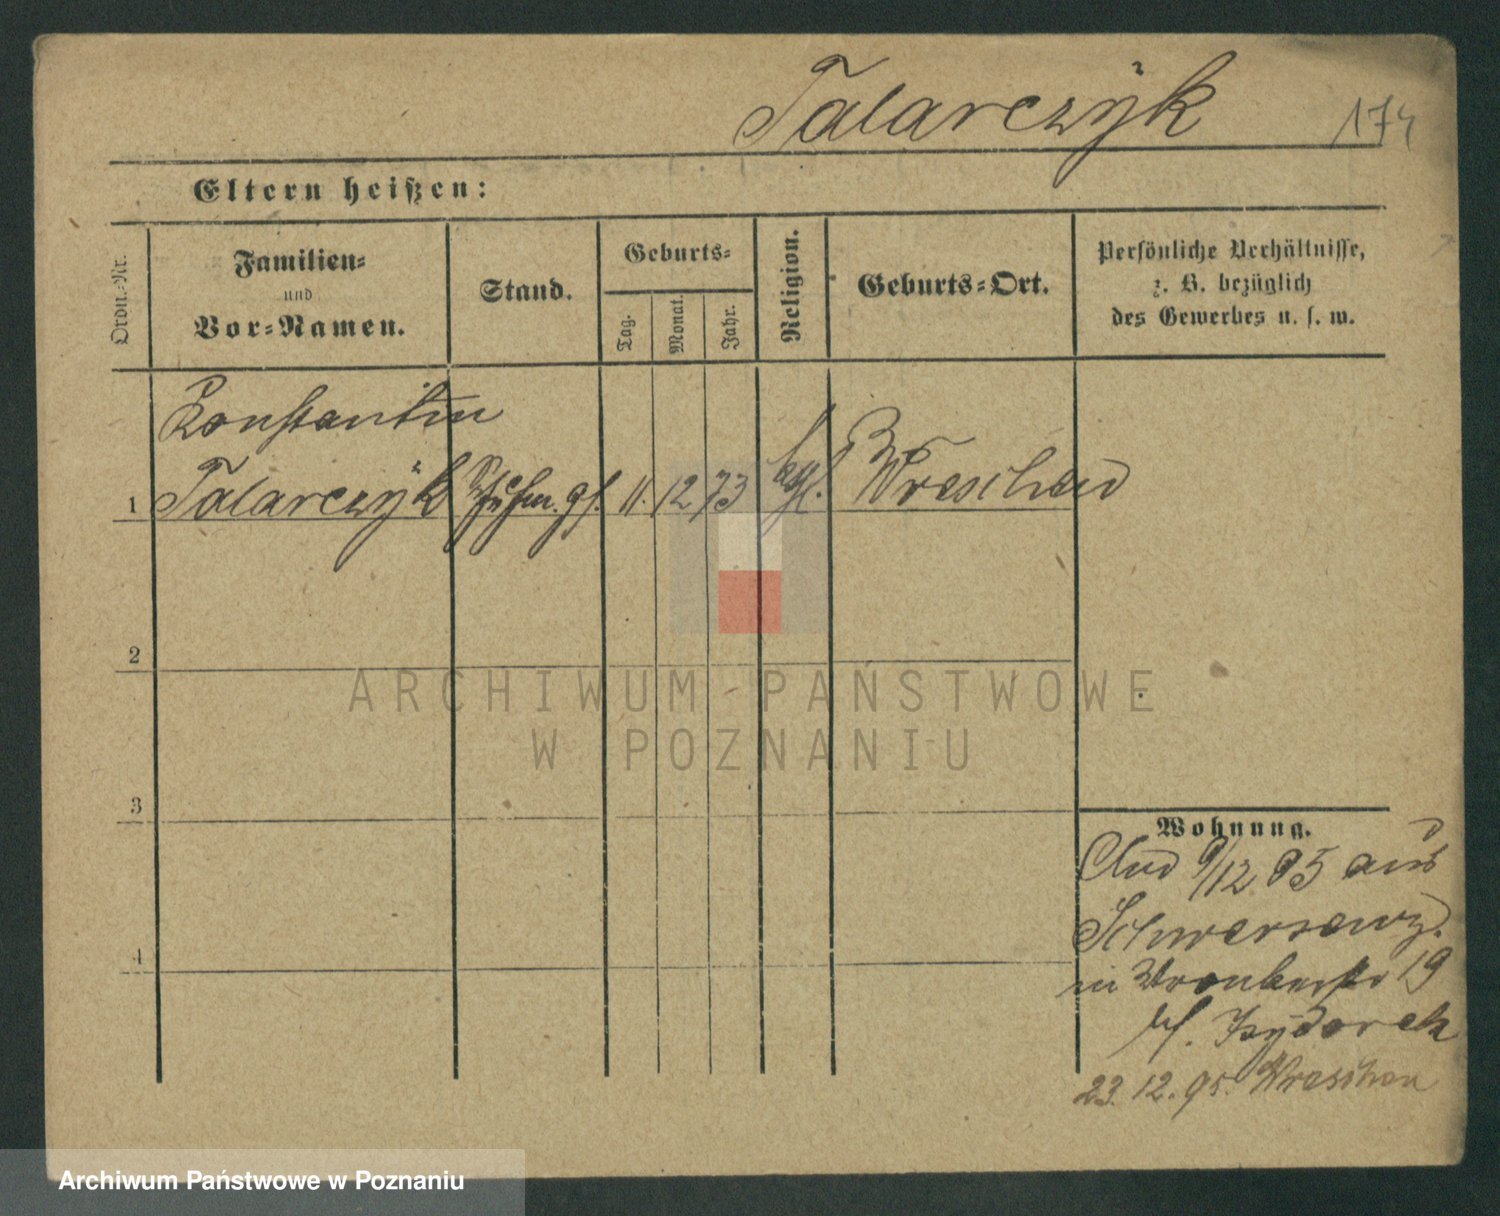 Talarczyk 174
Eltern heißen:
Ordn.-Nr.
Familien- und Vor-Namen.
Stand.
Geburts-
Tag. Monat. Jahr.
Religion.
Geburts-Ort.
Persönliche Verhältnisse,
z. B. bezüglich
des Gewerbes u. s. w.
Konstantin
1 Talarczyk 11. 12 73 Wreschen
2
3
4
Wohnung.
9/12 95 aus
Schwersenz.
in 19
bei
23. 12. 95. Wreschen
ARCHIWUM PAŃSTWOWE
W POZNANIU
Archiwum Państwowe w Poznaniu